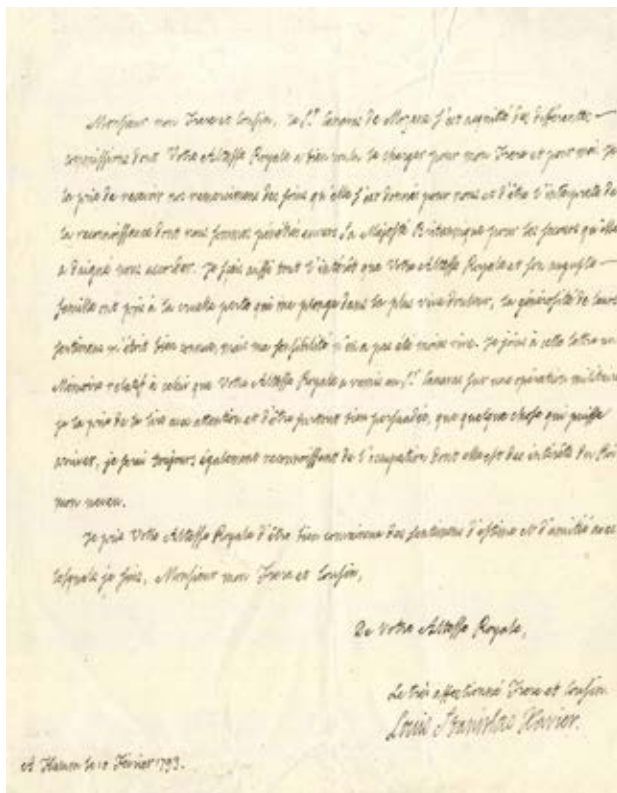 Monsieur mon Frere et Cousin, le Sr. de s'est acquitté des différentes
commissions dont Votre Altesse Royale a bien voulu le charger pour mon Frere et pour moi. Je
la prie de recevoir nos remercimens des soins qu'elle s'est donnés pour nous et d'être l'interprete de
la reconnoissance dont nous sommes pénétrés envers Sa Majesté Britannique pour les secours qu'elle
a daigné nous accorder. Je sais aussi tout l'intérêt que Votre Altesse Royale et son auguste
famille ont pris à la cruelle perte qui me plonge dans la plus vive douleur, la générosité de leurs
sentimens m'étoit bien connue, mais ma sensibilité n'en a pas été moins vive. Je joins à cette lettre un
Mémoire relatif à celui que Votre Altesse Royale a remis au Sr. sur une opération militaire
je la prie de le lire avec attention et d'être surtout bien persuadée, que quelque chose qui puisse
arriver, je serai toujours également reconnoissant de l'occupation dont elle est des intérêts du Roi
mon neveu.
Je prie Votre Altesse Royale d'être bien convaincue des sentimens d'estime et d'amitié avec
lesquels je suis, Monsieur mon Frere et Cousin,
De Votre Altesse Royale,
Le très affectionné Frere et Cousin.
Louis Stanislas Xavier.
A Hamm le 10 Février 1793.